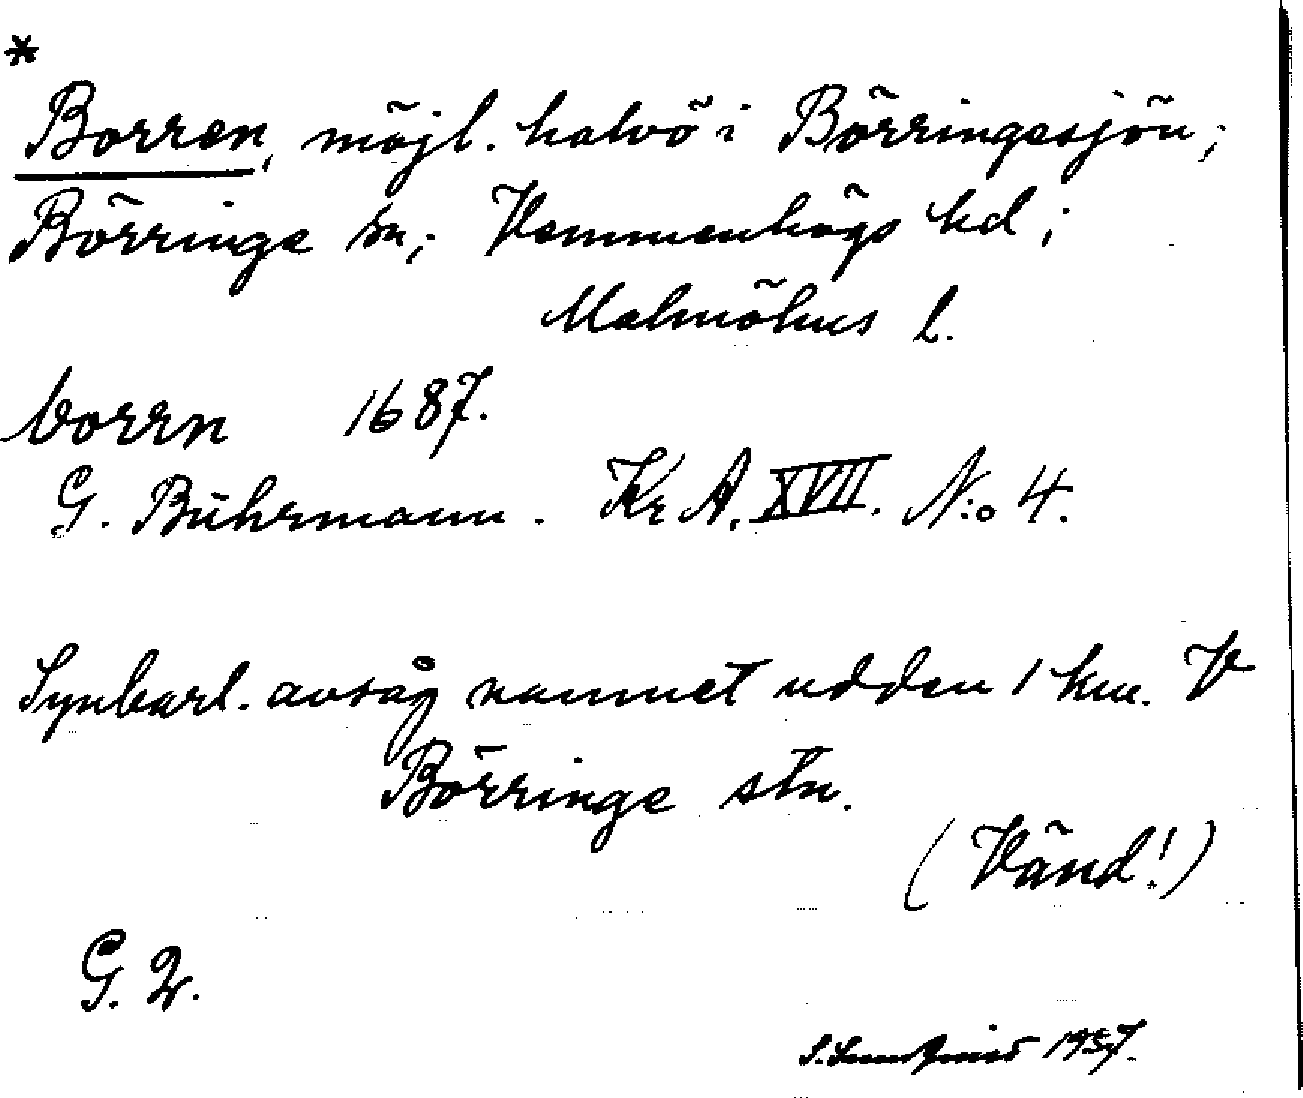 *
Borren, möjl. halvö i Börringesjön;
Börringe sn; Vemmenhögs hd;
Malmöhus l.
borrn 1687.
G. Bührmann. Kr A. XVII. N:o 4.
Synbarl. avsåg namnet udden 1 km. V
Börringe stn.
(Vänd!)
G. 2.
S. 1937.